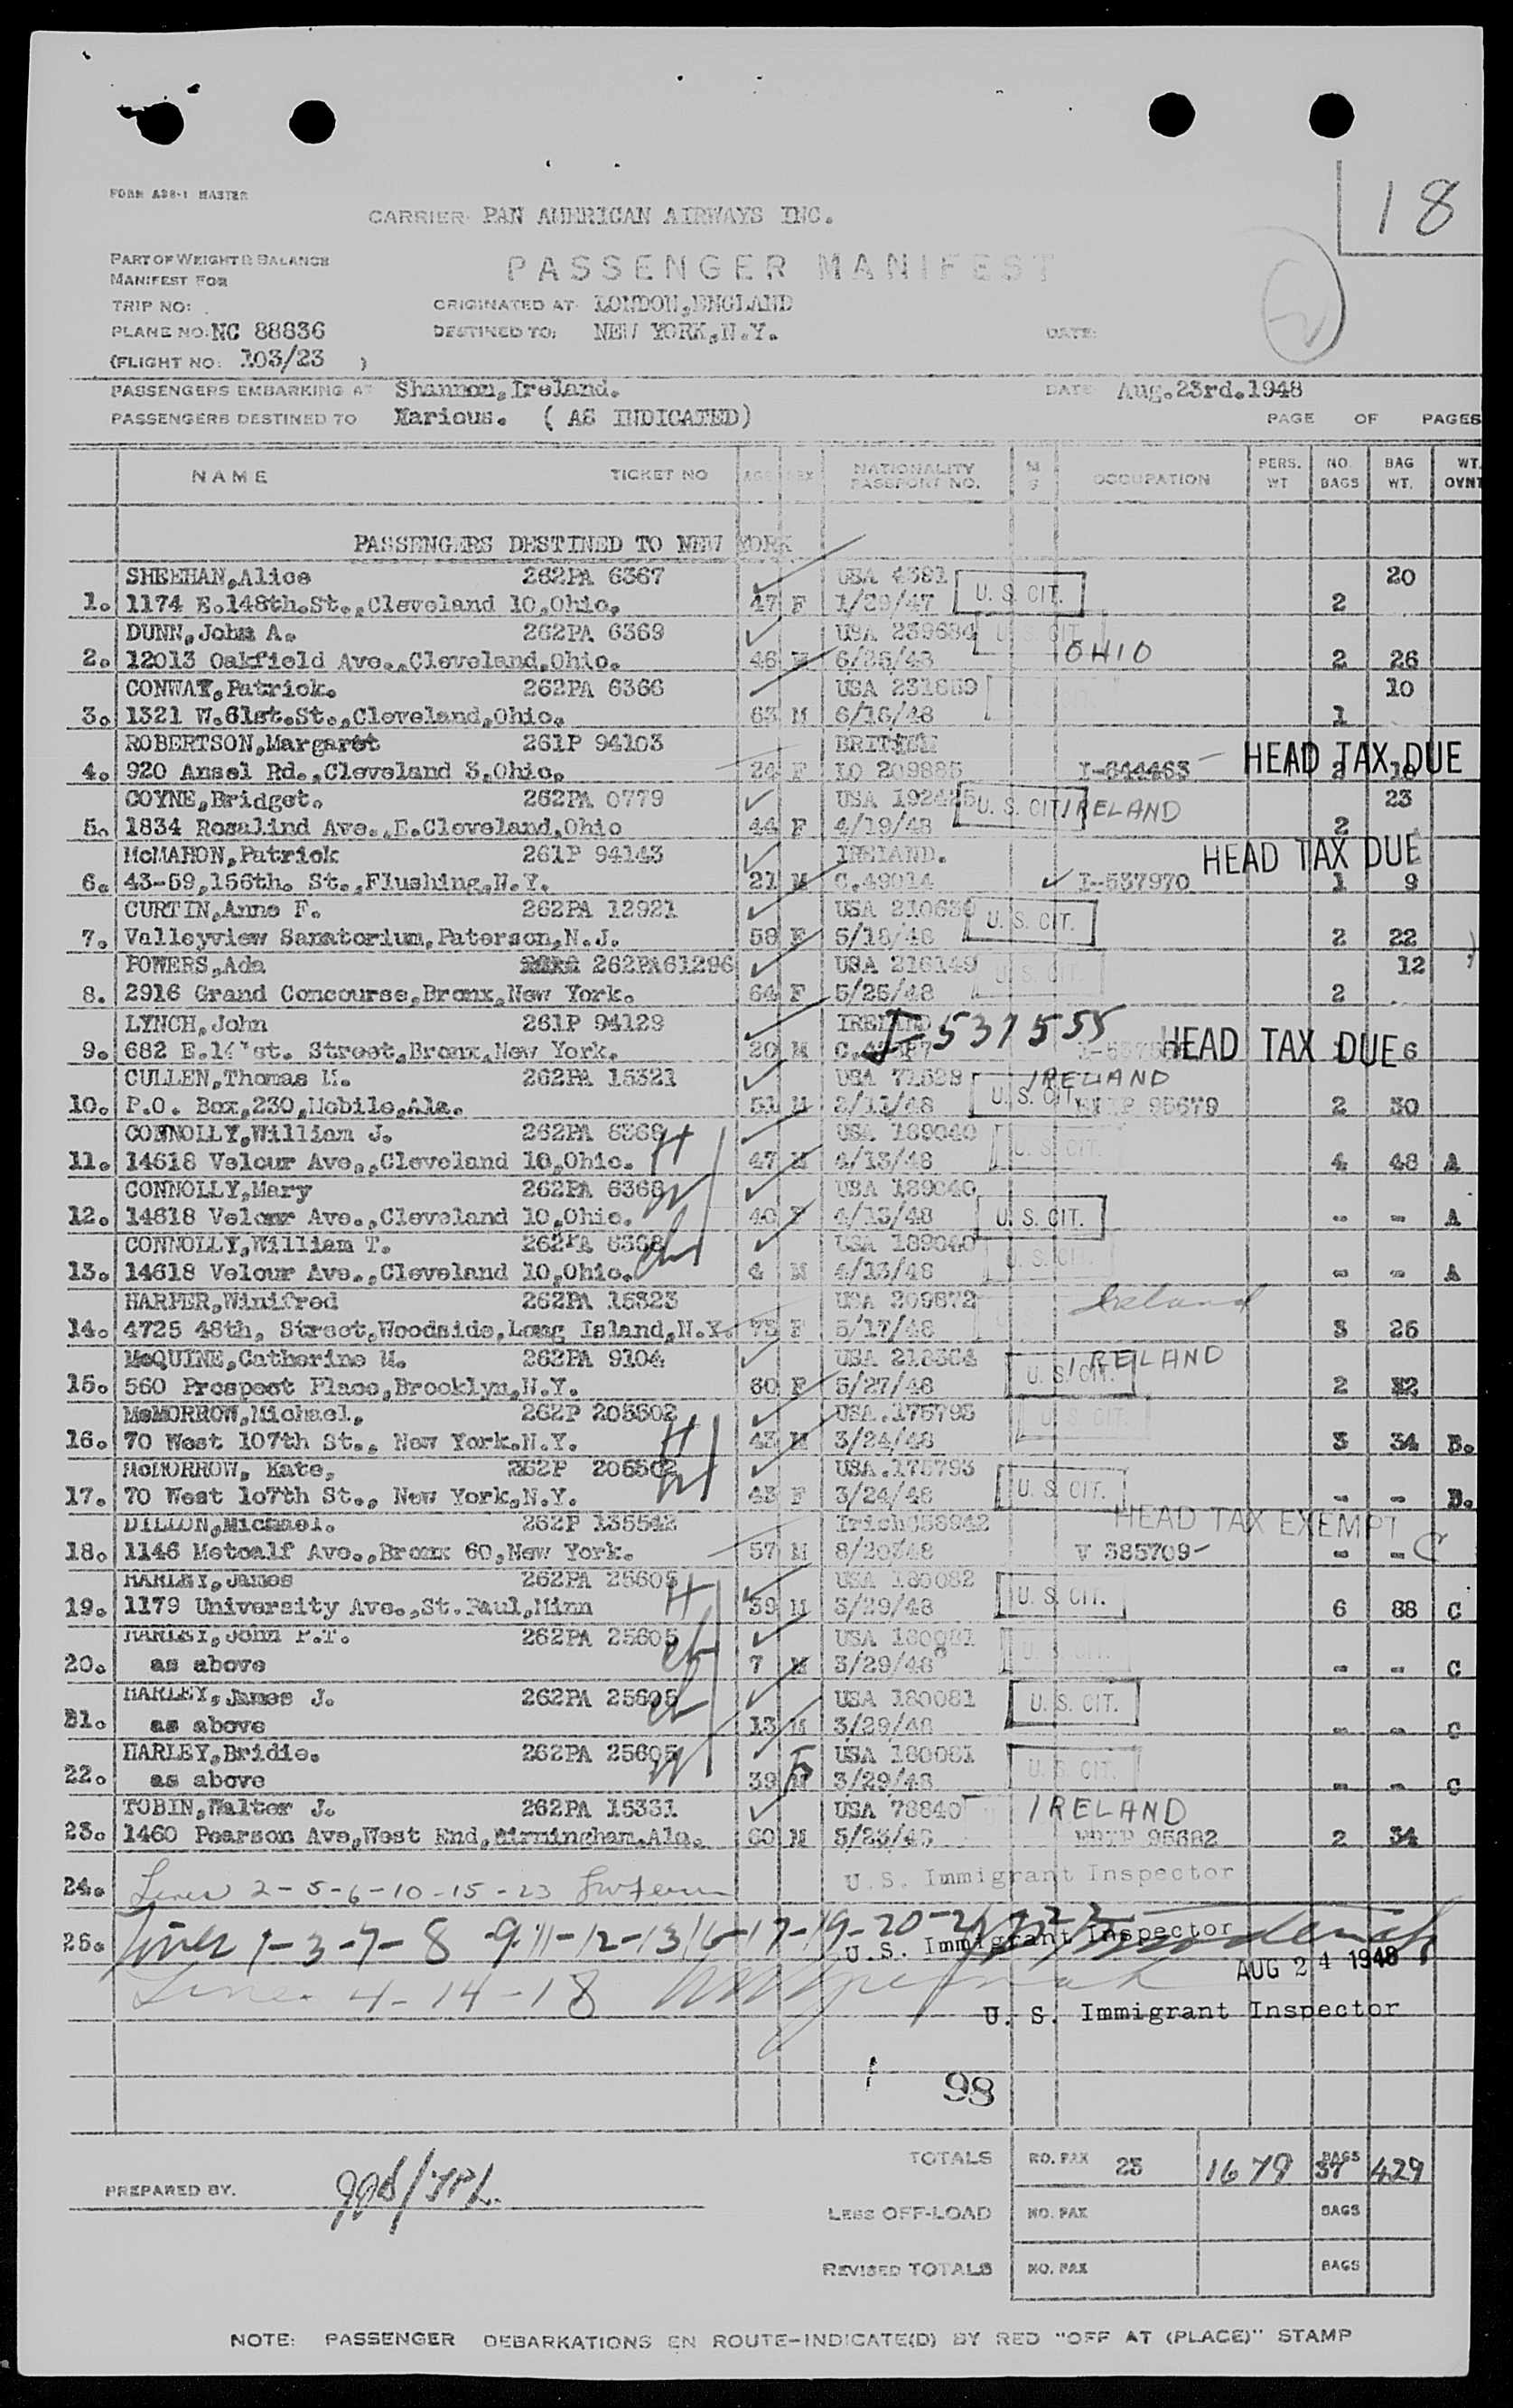 18
FORM ADB-1 MASTER
CARRIER PAN AMERICAN AIRWAYS INC.
PART OF WEIGHT & BALANCE
MANIFEST FOR
PASSENGER MANIFEST
TRIP NO:
ORIGINATED AT LONDON, ENGLAND
PLANE NO: NC 88836
DESTINED TO: NEW YORK, N.Y.
DATE:
(FLIGHT NO: 103/23 )
PASSENGERS EMBARKING AT Shannon, Ireland. DATE Aug.23rd.1948
PASSENGERS DESTINED TO Various. ( AS INDICATED) PAGE OF PAGES
NAME TICKET NO AGE SEX NATIONALITY PASSPORT NO. M S OCCUPATION PERS. WT NO. BAGS BAG WT. WT. OVNT
PASSENGERS DESTINED TO NEW YORK
SHEEHAN, Alice 262PA 6367 USA 4381 20
1. 1174 E.148th.St., Cleveland 10, Ohio. 47 F 1/29/47 U. S. CIT. 2
DUNN, John A. 262PA 6369 USA 239684 U. S. CIT.
2. 12013 Oakfield Ave., Cleveland, Ohio. 46 M 6/25/48 OHIO 2 26
CONWAY, Patrick. 262PA 6366 USA 231859 10
3. 1321 W.61st.St., Cleveland, Ohio. 63 M 6/16/48 1
ROBERTSON, Margaret 261P 94103 BRITISH
4. 920 Ansel Rd., Cleveland 3, Ohio. 24 F LO 209885 I-644463 HEAD TAX DUE
COYNE, Bridget. 262PA 0779 USA 192425 U. S. CIT. IRELAND 23
5. 1834 Rosalind Ave., E.Cleveland, Ohio 44 F 4/19/48 2
McMAHON, Patrick 261P 94143 IRELAND. HEAD TAX DUE
6. 43-59, 156th. St., Flushing, N.Y. 21 M C.49014 I-537970 1 9
CURTIN, Anne F. 262PA 12921 USA 210639 U. S. CIT.
7. Valleyview Sanatorium, Paterson, N.J. 58 F 5/18/48 2 22
POWERS, Ada 262PA61296 USA 216149 U. S. CIT. 12
8. 2916 Grand Concourse, Bronx, New York. 64 F 5/25/48 2
LYNCH, John 261P 94129 IRELAND I-537555
9. 682 E. st. Street, Bronx, New York. 20 M HEAD TAX DUE 6
CULLEN, Thomas M. 262PA 15321 USA 71528 IRELAND
10. P.O. Box, 230, Mobile, Ala. 51 M 2/11/48 U. S. CIT. 95679 2 30
CONNOLLY, William J. 262PA 6368 H USA 189040 U. S. CIT.
11. 14618 Velour Ave., Cleveland 10, Ohio. 47 M 4/13/48 4 48 A
CONNOLLY, Mary 262PA 6368 W USA 189040
12. 14618 Velour Ave., Cleveland 10, Ohio. 40 F 4/13/48 U. S. CIT. - - A
CONNOLLY, William T. 262PA 6368 ch USA 189040 U. S. CIT.
13. 14618 Velour Ave., Cleveland 10, Ohio. 4 M 4/13/48 - - A
HARPER, Winifred 262PA 15323 USA 209872 Ireland
14. 4725 48th, Street, Woodside, Long Island, N.Y. 73 F 5/17/48 3 26
McQUINE, Catherine M. 262PA 9104 USA 218304 U. S. CIT. IRELAND
15. 560 Prospect Place, Brooklyn, N.Y. 60 F 5/27/48 2 32
McMORROW, Michael. 262P 205502 H USA.175793 U. S. CIT.
16. 70 West 107th St., New York. N.Y. 43 M 3/24/48 3 34 B.
McMORROW, Kate, 262P 205502 W USA.175793 U. S. CIT.
17. 70 West 107th St., New York, N.Y. 43 F 3/24/48 - - B.
DILLON, Michael. 262P 135542 Irish C58942 HEAD TAX EXEMPT
18. 1146 Metcalf Ave., Bronx 60, New York. 57 M 8/20/48 V 385709 - - C
HARLEY, James 262PA 25605 H USA 180082 U. S. CIT.
19. 1179 University Ave., St. Paul, Minn 39 M 3/29/48 6 88 C
HARLEY, John P.T. 262PA 25605 ch USA 180081 U. S. CIT.
20. as above 7 M 3/29/48 - - C
HARLEY, James J. 262PA 25605 ch USA 180081 U. S. CIT.
21. as above 13 M 3/29/48 - - C
HARLEY, Bridie. 262PA 25605 W F USA 180081 U. S. CIT.
22. as above 39 M 3/29/48 - - C
TOBIN, Walter J. 262PA 15331 USA 78840 IRELAND
23. 1460 Pearson Ave, West End, Birmingham. Ala. 60 M 5/23/48 95682 2 34
24. Lines 2-5-6-10-15-23 U.S. Immigrant Inspector
26. Lines 1-3-7-8-9-11-12-13-16-17-19-20-21-22 U.S. Immigrant Inspector
AUG 24 1948
Lines 4-14-18
U. S. Immigrant Inspector
98
TOTALS NO. PAX 23 1679 BAGS 37 429
PREPARED BY.
LESS OFF-LOAD NO. PAX BAGS
REVISED TOTALS NO. PAX BAGS
NOTE: PASSENGER DEBARKATIONS EN ROUTE-INDICATE(D) BY RED "OFF AT (PLACE)" STAMP